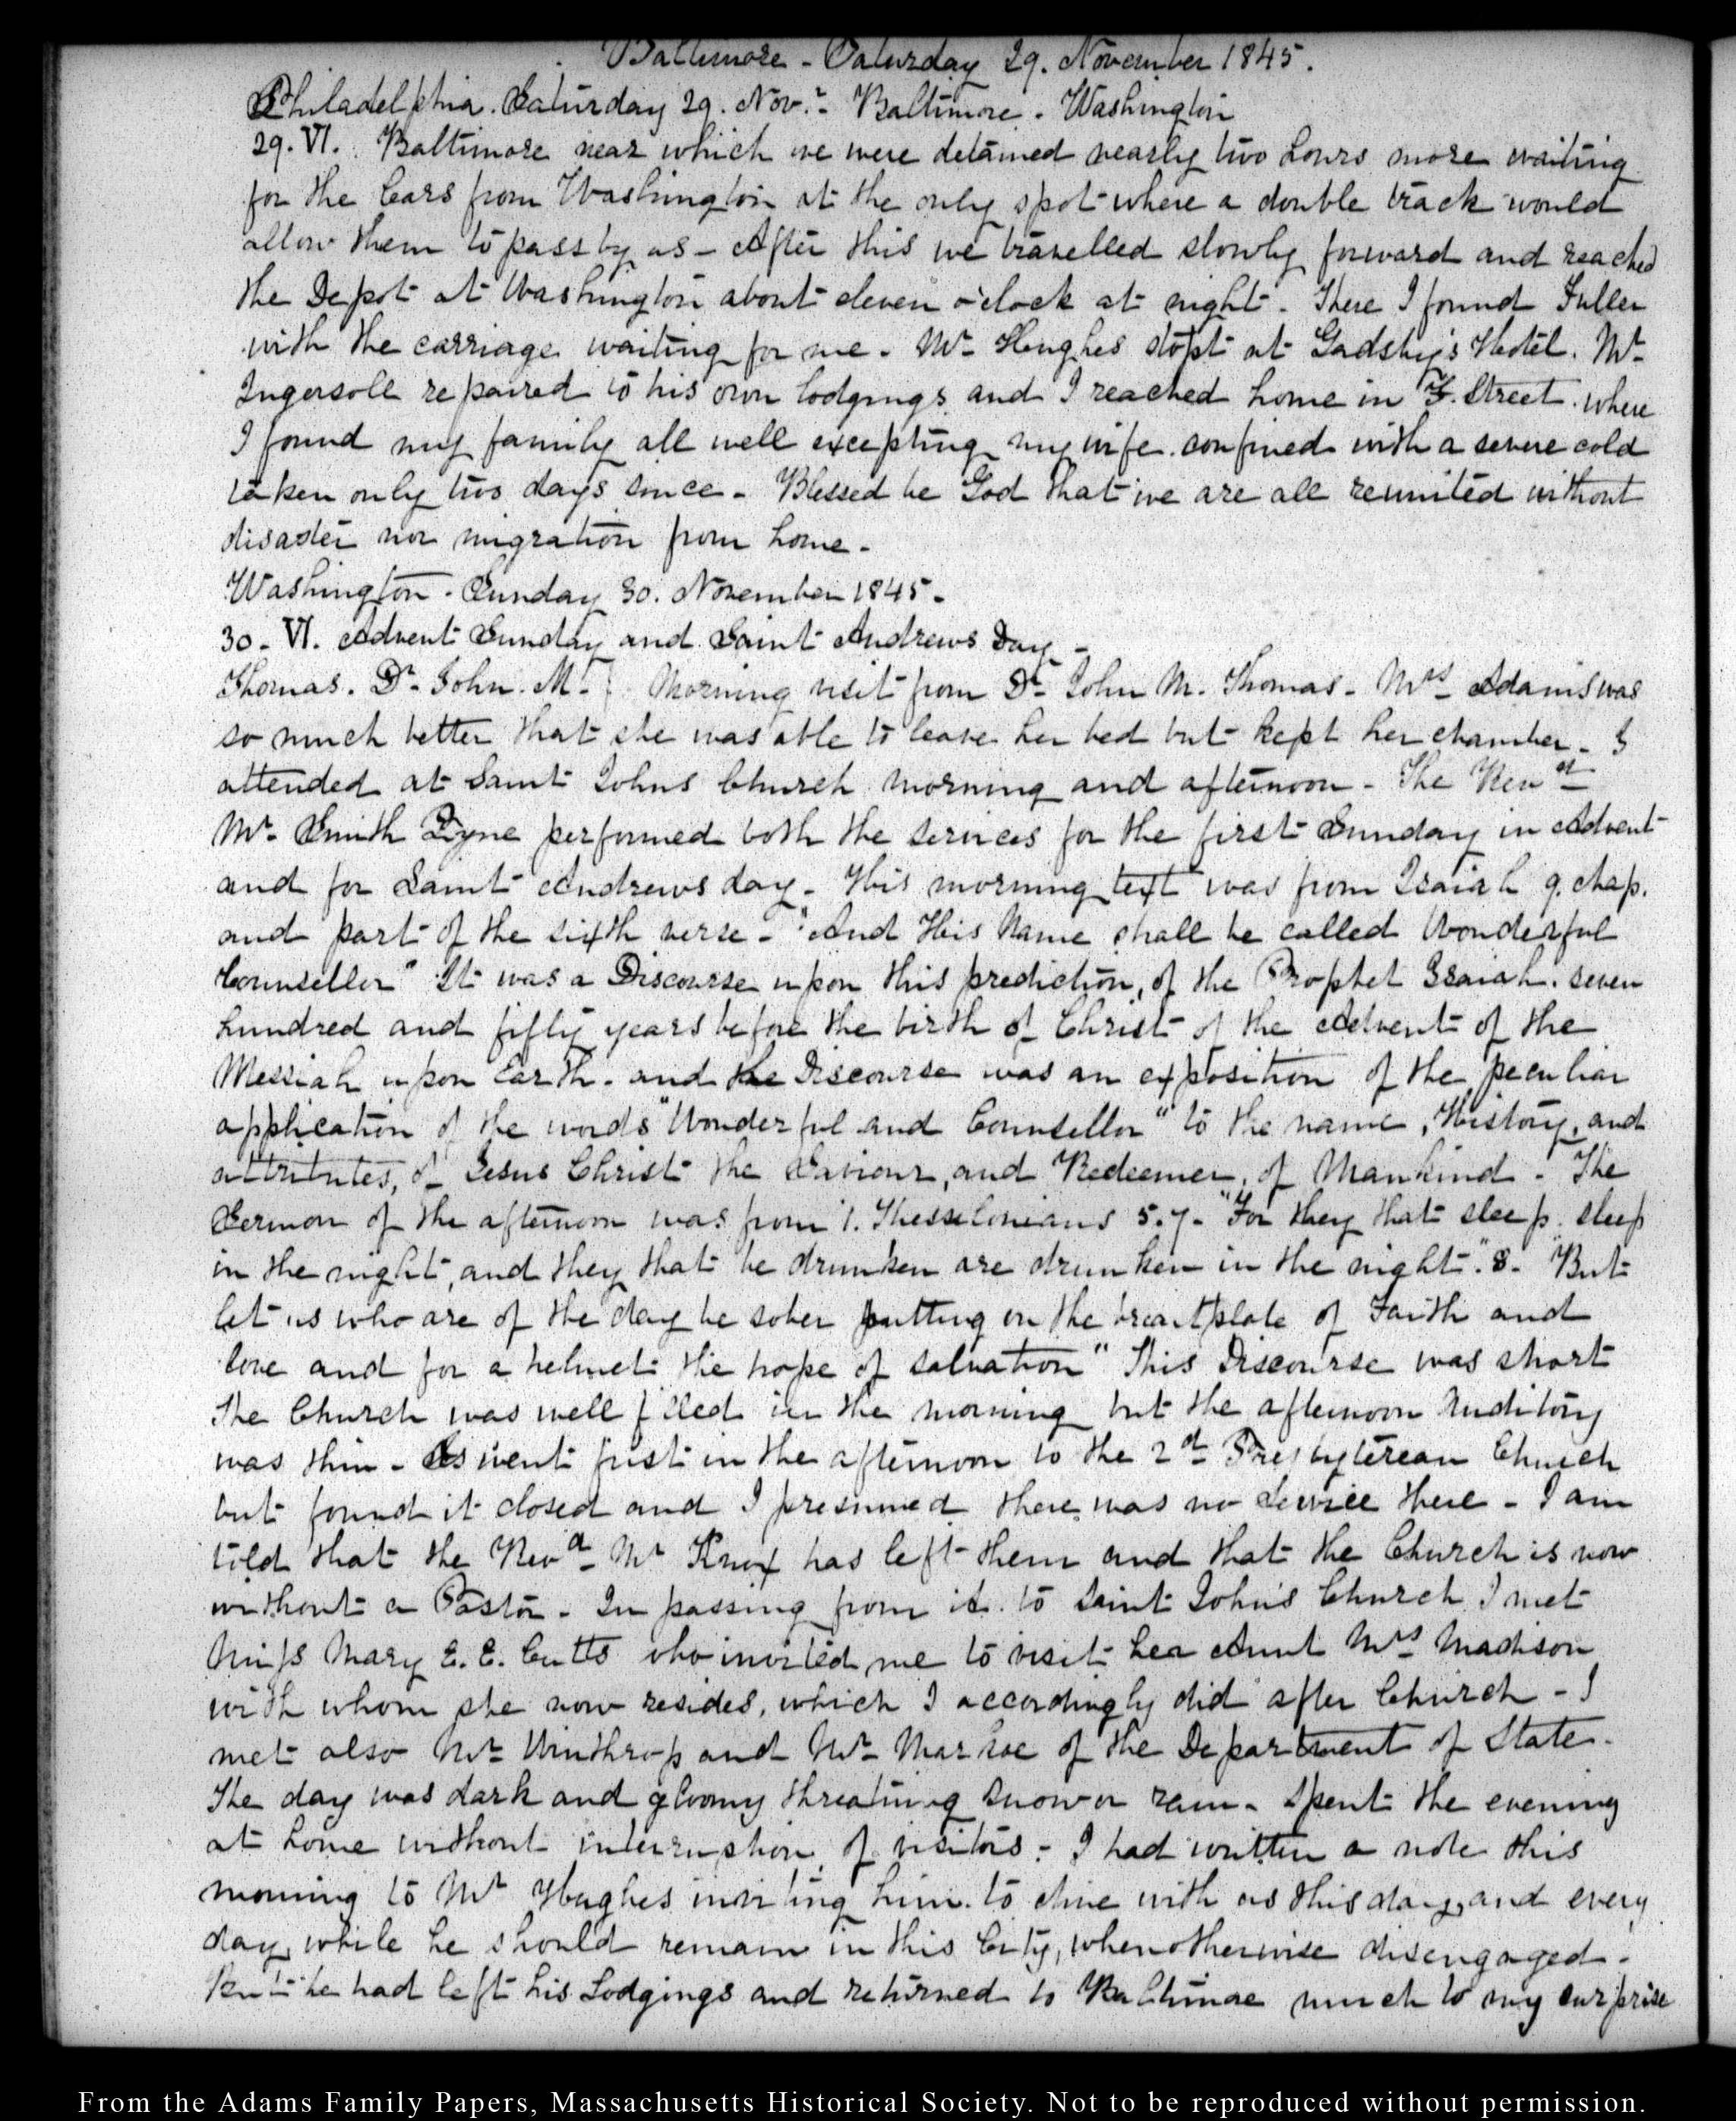 Baltimore - Saturday 29. November 1845.
Philadelphia. Saturday 29. Novr.- Baltimore. Washington
29. VI. Baltimore near which we were detained nearly two hours more waiting
for the Cars from Washington at the only spot where a double track would
allow them to pass by us - After this we travelled slowly forward and reached
the Depot at Washington about eleven o'clock at night - There I found Fuller
with the carriage waiting for me. Mr Hughes stopt at Gadsby's Hotel. Mr
Ingersoll repaired to his own lodgings and I reached home in F. Street where
I found my family all well excepting my wife confined with a severe cold
taken only two days since - Blessed be God that we are all reunited without
disaster nor migration from home -
Washington - Sunday 30. November 1845.
30 - VI. Advent Sunday and Saint Andrews Day -
Thomas. Dr. John. M. } Morning visit from Dr John M. Thomas - Mrs Adams was
so much better that she was able to leave her bed but kept her chamber - I
attended at Saint Johns Church morning and afternoon - The Revd
Mr Smith Pyne performed both the services for the first Sunday in Advent
and for Saint Andrews day - His morning text was from Isaiah 9. chap.
and part of the sixth verse - "And His Name shall be called Wonderful
Counsellor" It was a Discourse upon this prediction, of the Prophet Isaiah. seven
hundred and fifty years before the birth of Christ of the Advent of the
Messiah upon Earth - and the Discourse was an exposition of the peculiar
application of the words "Wonderful and Counsellor" to the name, History, and
attributes, of Jesus Christ the Saviour, and Redeemer, of Mankind - The
Sermon of the afternoon was from 1. Thessalonians 5.7 - "For they that sleep. sleep
in the night, and they that be drunken are drunken in the night". 8. "But
let us who are of the day be sober putting on the breastplate of Faith and
love and for a helmet the hope of salvation" This Discourse was short
The Church was well filled in the morning but the afternoon Auditory
was thin - went first in the afternoon to the 2d Presbyterean Church
but found it closed and I presumed there was no Service there - I am
told that the Revd Mr Knox has left them and that the Church is now
without a Pastor - In passing from it to Saint John's Church I met
Miss Mary E. E. Cutts who invited me to visit her Aunt Mrs Madison
with whom she now resides, which I accordingly did after Church - I
met also Mr Winthrop and Mr Markoe of the Department of State -
The day was dark and gloomy threatning snow or rain - Spent the evening
at home without interruption of visitors - I had written a note this
morning to Mr Hughes inviting him to dine with us this day, and every
day, while he should remain in this City, when otherwise disengaged -
But he had left his Lodgings and returned to Baltimore much to my surprise
From the Adams Family Papers, Massachusetts Historical Society. Not to be reproduced without permission.